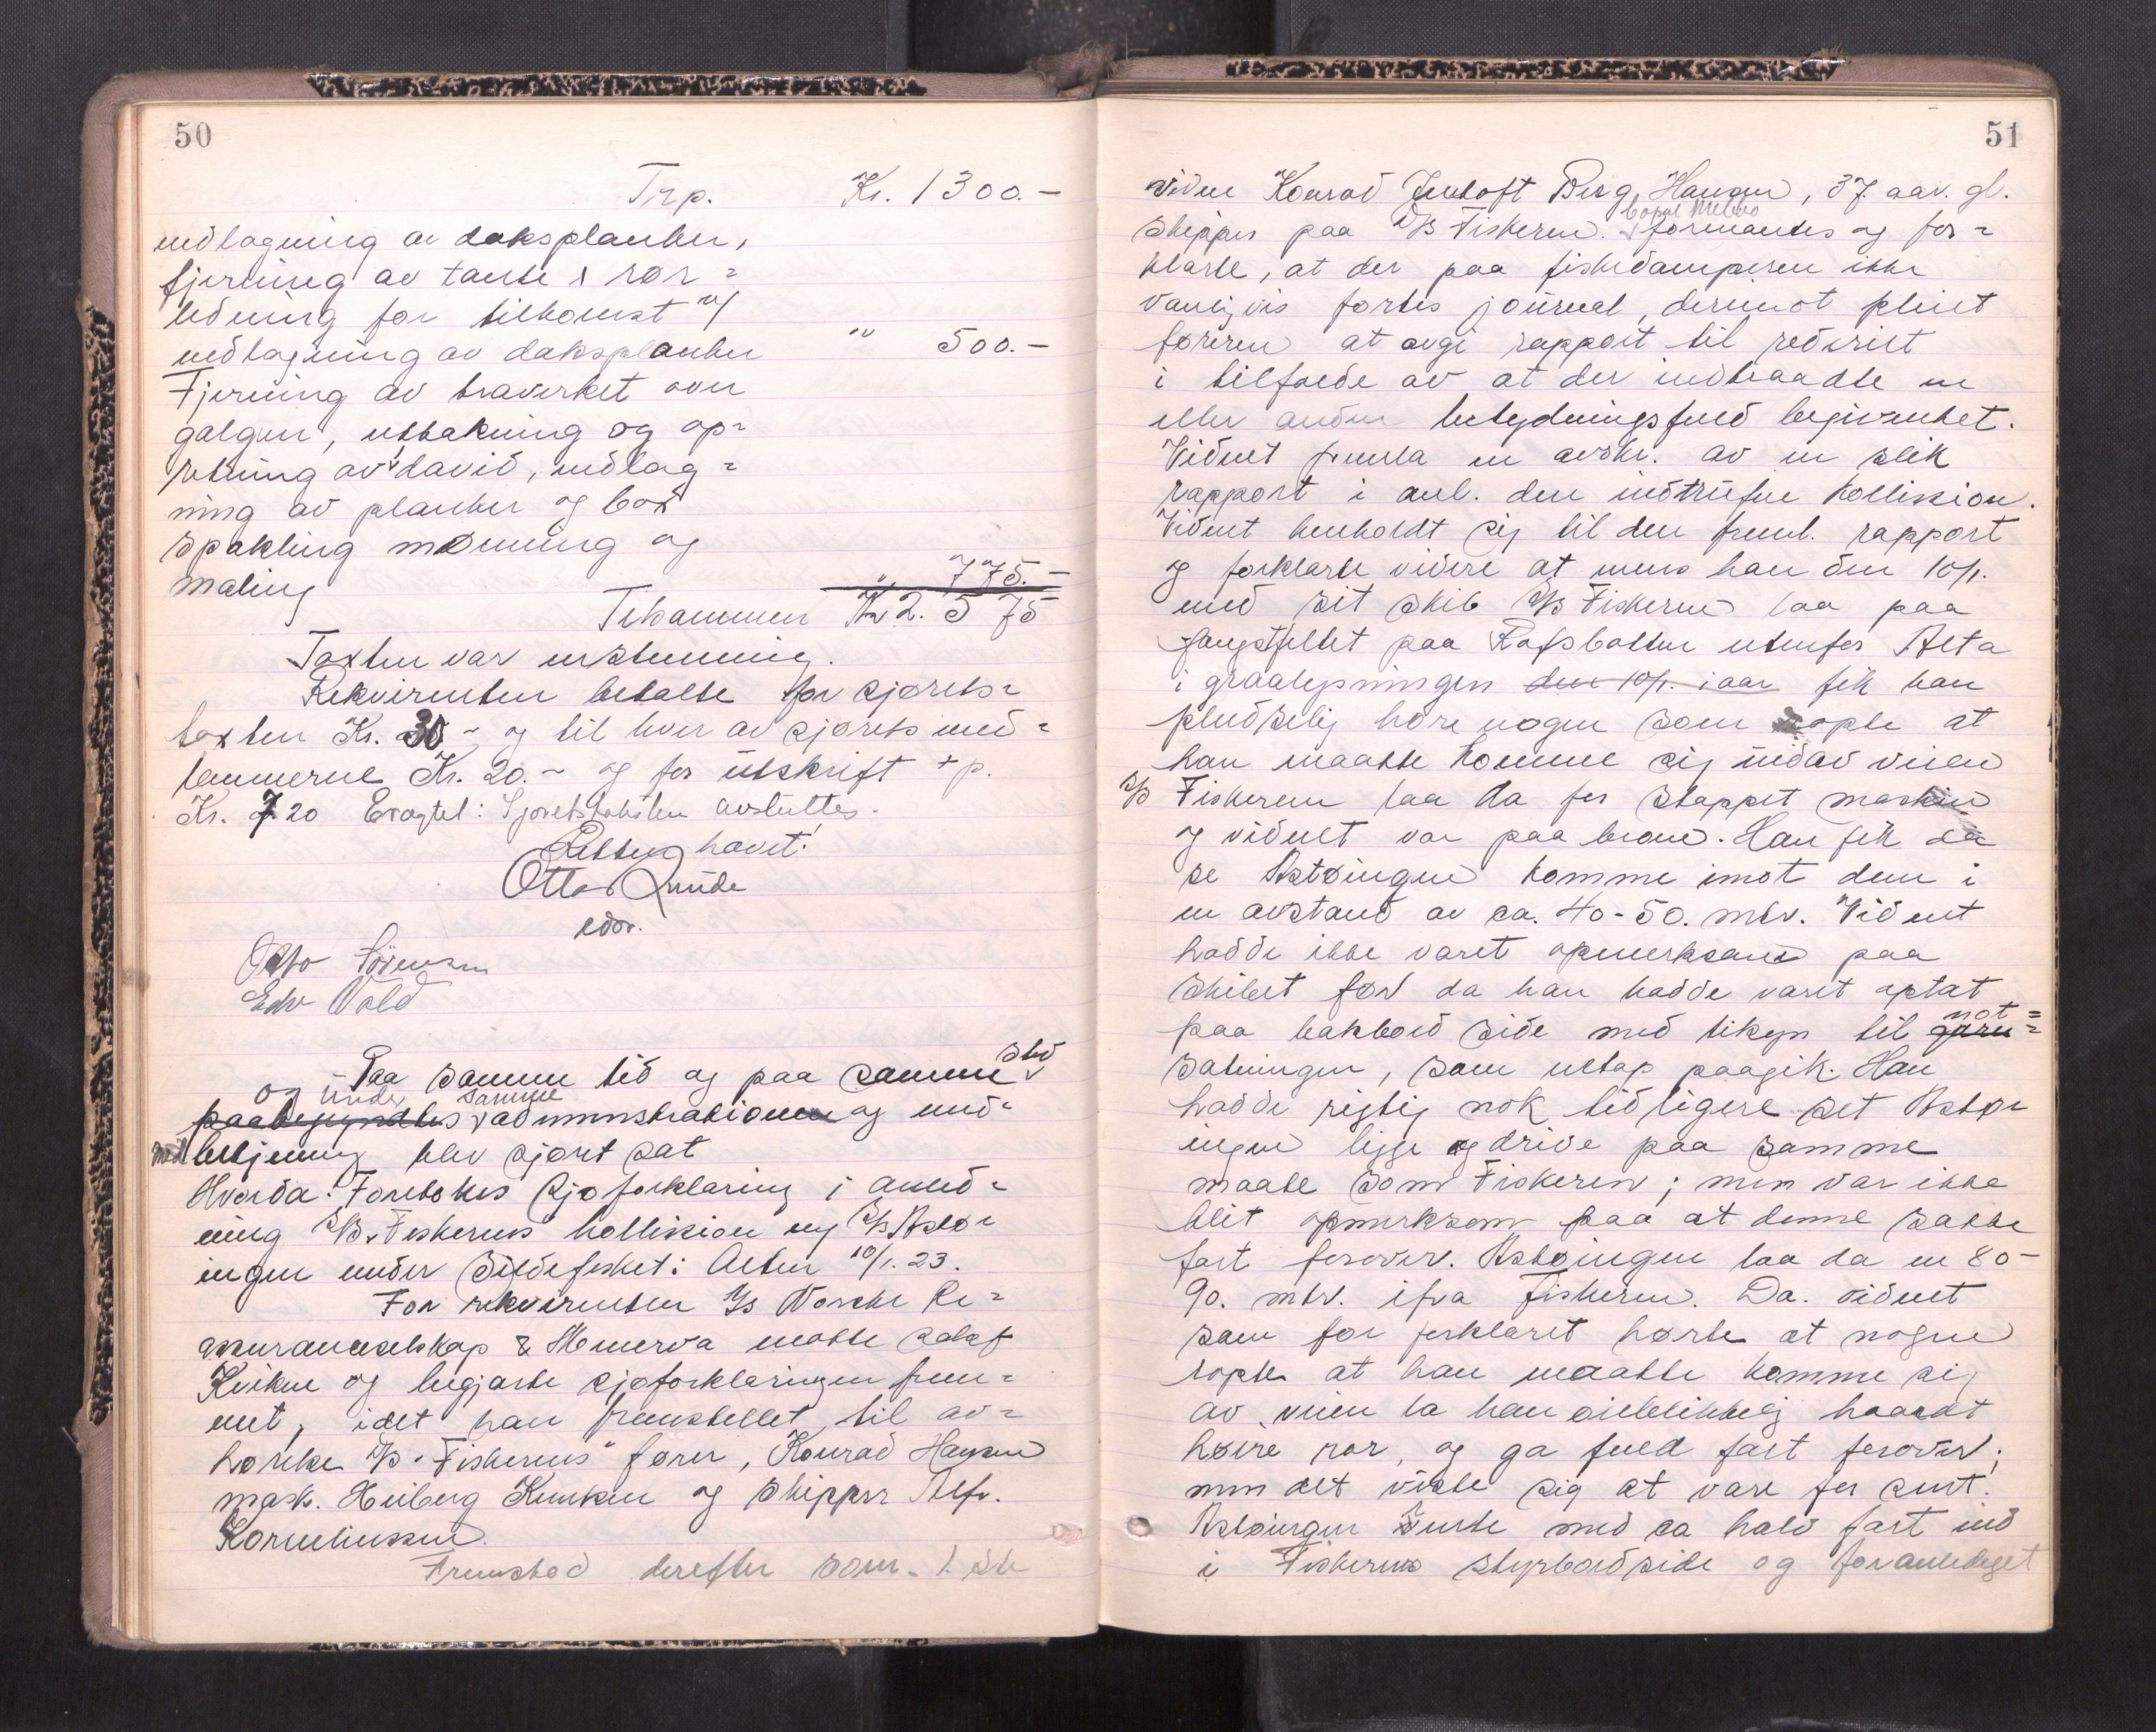 50
Trp. Kr. 1300.-
indlægning av dæksplanker,
fjerning av tanke & rør=
ledning for tilkomst "/
indlægning av dæksplanker " 500.-
Fjerning av træverket over
galgen, uttakning og op=
retning av david, indlæg=
ning av planker og box
spakling mønning og
maling " 775.-
Tilsammen Kr 2.575
Taxten var enstemmig.
Rekvirenten betalte for sjørets=
taxten Kr. 30 - og til hver av sjørets med=
lemmerne Kr. 20.- og for utskrift + p.
Kr. 7 20 Sjøretstaksten avsluttes.
Retten hævet!
Otto Lunde
edsv.
Otto Sørensen
Edv Vold
Paa samme tid og paa samme sted
og under samme
paabegyndtes administration og med=
med betjening blev sjøret sat
Hvorda: Foretokes sjøforklaring i anled=
ning S/S. Fiskerens kollission m/ S/S Astø=
ingen under sildefisket i Alten 10/1.23.
For rekvirenten A/S Norske Re=
assuranceselskap & Minerva møtte
og begjærte sjøforklaringen frem=
met, idet han fremstillet til av=
hørelse S/S "Fiskerens" fører, Konrad Hansen
mask. Heiberg Knutsen og skipper Alfr.
Korneliussen.
Fremstod derefter som 1. ste
51
vidne Konrad Jentoft Berg Hansen, 37. aar. gl.
skipper paa S/S Fiskeren. formantes og for=
klarte, at der paa fiskedamperen ikke
vanligvis førtes journal, derimot pleiet
føreren at avgi rapport til rederiet
i tilfælde av at der indtraadte en
eller anden betydningsfuld begivenhet.
Vidnet freml. en avskr. av en slik
rapport i anl. den indtrufne kollission.
Vidnet henholdt sig til den freml. rapport
og forklarte videre at mens han den 10/1.
med sit skib S/S Fiskeren laa paa
fangstfeltet paa Rafsbotten utenfor Alta
i graalysningen den 10/1. iaar fik han
pludselig høre nogen som ropte at
han maatte komme sig indav veien
S/S Fiskeren laa da for stoppet maskin
og vidnet var paa broen. Han fik da
se Astøingen komme imot dem i
en avstand av ca. 40-50. mtr. Vidnet
hadde ikke været opmerksom paa
skibet før da han hadde været optat
paa bakbord side med tilsyn til garn= not=
sætningen, som netop paagik. Han
hadde rigtig nok tidligere set Astø=
ingen ligge og drive paa samme
maate som Fiskeren; men var ikke
blit opmerksom paa at denne satte
fart forover. Astøingen laa da en 80-
90. mtr. ifra Fiskeren. Da vidnet
som før forklaret hørte at nogen
ropte at han maatte komme sig
av veien la han øieblikkelig haardt
høire ror, og ga fuld fart forover;
men det viste sig at være for sent.
Astøingen rente med ca halv fart ind
i Fiskerens styrbordside og foranlediget